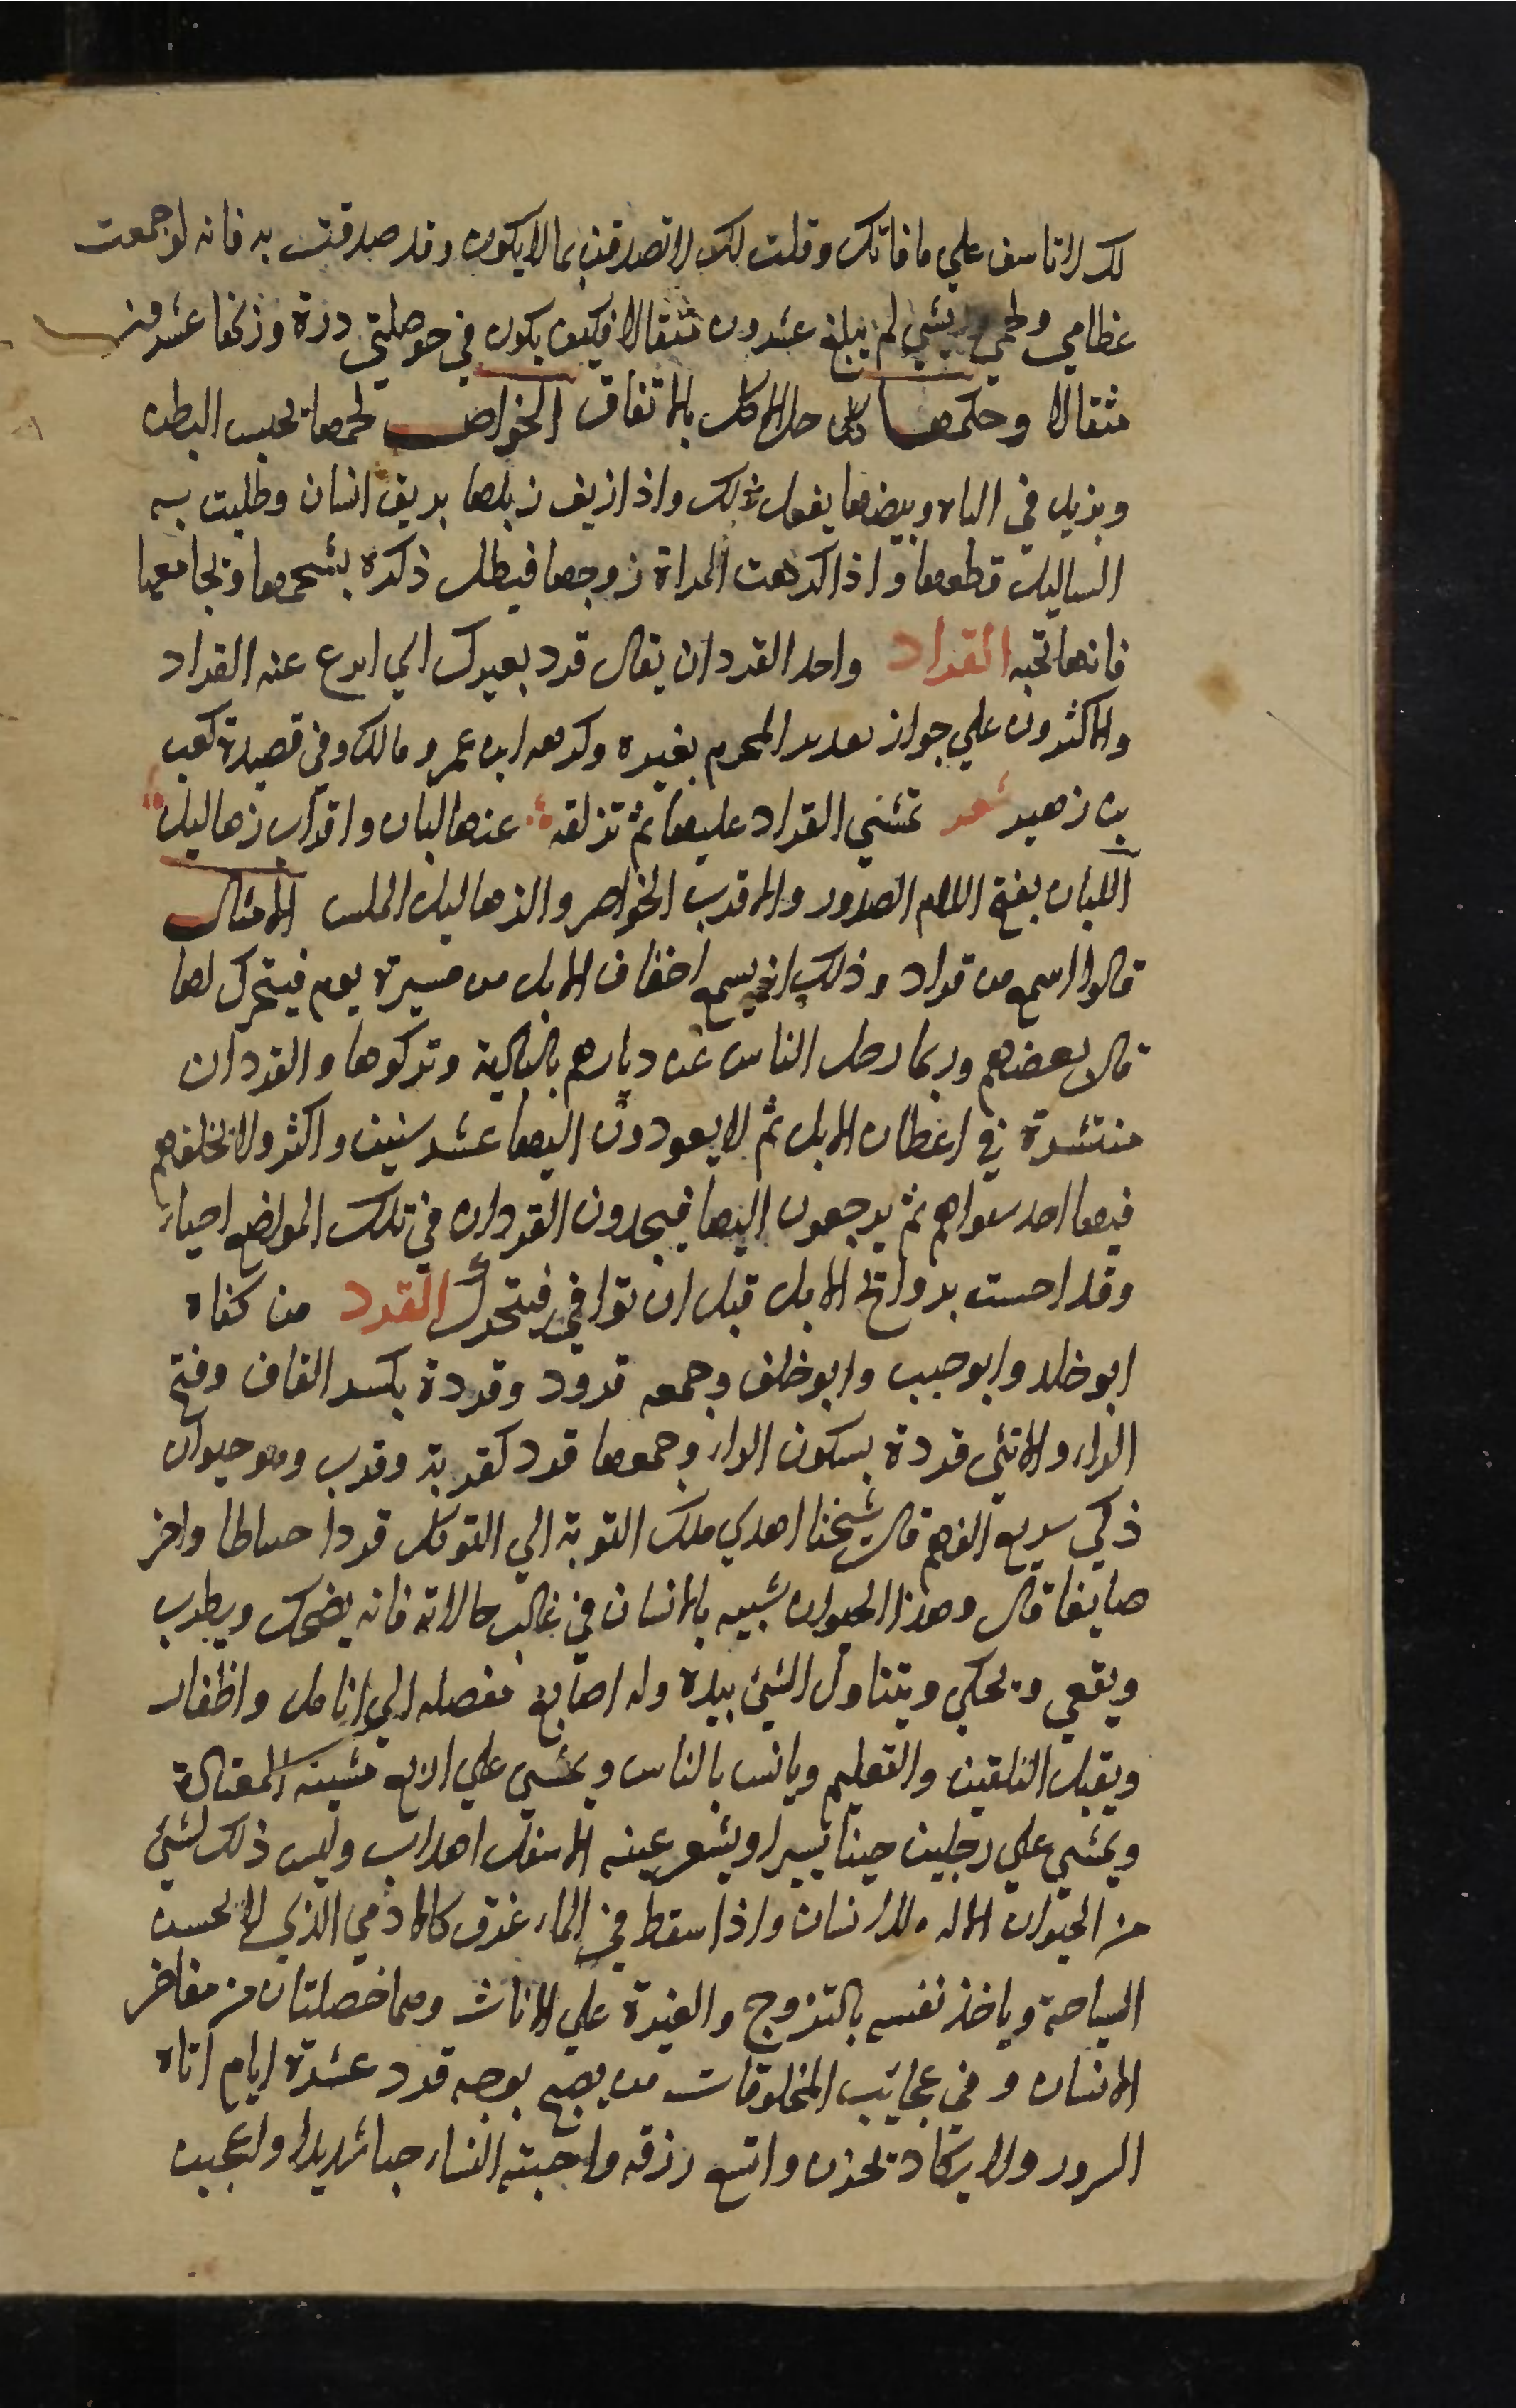 لك لا تاسف علي ما فاتك وقلت لك لا تصدقن بما لا يكون وقد صدقت به فانه لو جمعت
عظامي ولحمي وريشي لم يبلغ عشرون مثقالا فكيف يكون في حوصلتي درة وزنها عشرون
مثقالا وحكمها حل الاكل بالاتفاق الخواص لحمها يحبس البطن
ويزيل في الباه وبيضها يفعل ذلك واذا اذيف زبلها بريق انسان وطليت به
الساليل قطعها واذا كرهت المراة زوجها فيطل ذكره بشحمها ويجامعها
فانها تحبه القراد واحد القردان يقال قرد بعيرك اي انزع عنه القراد
والاكثرون علي جواز تقريد المحرم بعيره وكرهه ابن عمر ومالك وفي قصيدة كعب
بن زهير شعر تمشي القراد عليها ثم تزلقه عنها لبان واقراب زهاليل
اللبان بفتح اللام الصدور والاقرب الخواصر والزهاليل الملس الامثال
قالوا اسمع من قراد وذلك انه يسمع اخفاف الابل من مسيرة يوم فيتحرك لها
قال بعضهم وربما رحل الناس عن ديارهم بالبالية وتركوها والقردان
منتشرة في اعطان الابل ثم لا يعودون اليها عشر سنين واكثر ولا يخلفهم
فيها احد سواهم ثم يرجعون اليها فيجدون القردان في تلك المواضع احياء
وقد احست بروائح الابل قبل ان توافي فيتحرك القرد من كناه
ابو خالد وابو حبيب وابو خلف وجمعه قرود وقردة بكسر القاف وفتح
الراء والانثى قردة بسكون الراء وجمعها قرد كقربة وقرب وهو حيوان
ذكي سريع الفهم قال شيخنا اهدي ملك النوبة الي المتوكل قردا خياطا واخر
صايغا قال وهذا الحيوان شبيه بالانسان في غالب حالاته فانه يضحك ويطرب
ويقعي ويحكي ويتناول الشئ بيده وله اصابع مفصله الي انامل واظفار
ويقبل التلقين والتعليم ويانس بالناس ويمشي علي اربع مشيته المعتادة
ويمشي علي رجلين حينا يسيرا وبشعر عينه الاسفل اهداب وليس ذلك لشئ
من الحيوان الا له وللانسان واذا سقط في الماء غرق كالادمي الذي لا يحسن
السباحة وياخذ نفسه بالتزوج والغيرة علي الاناث وهما خصلتان من مفاخر
الانسان وفي عجايب المخلوقات من يصبح بوجه قرد عشرة ايام اتاه
السرور ولا يكاد يحزن واتسع رزقه واحبته النساء حبا شديدا واعجبن